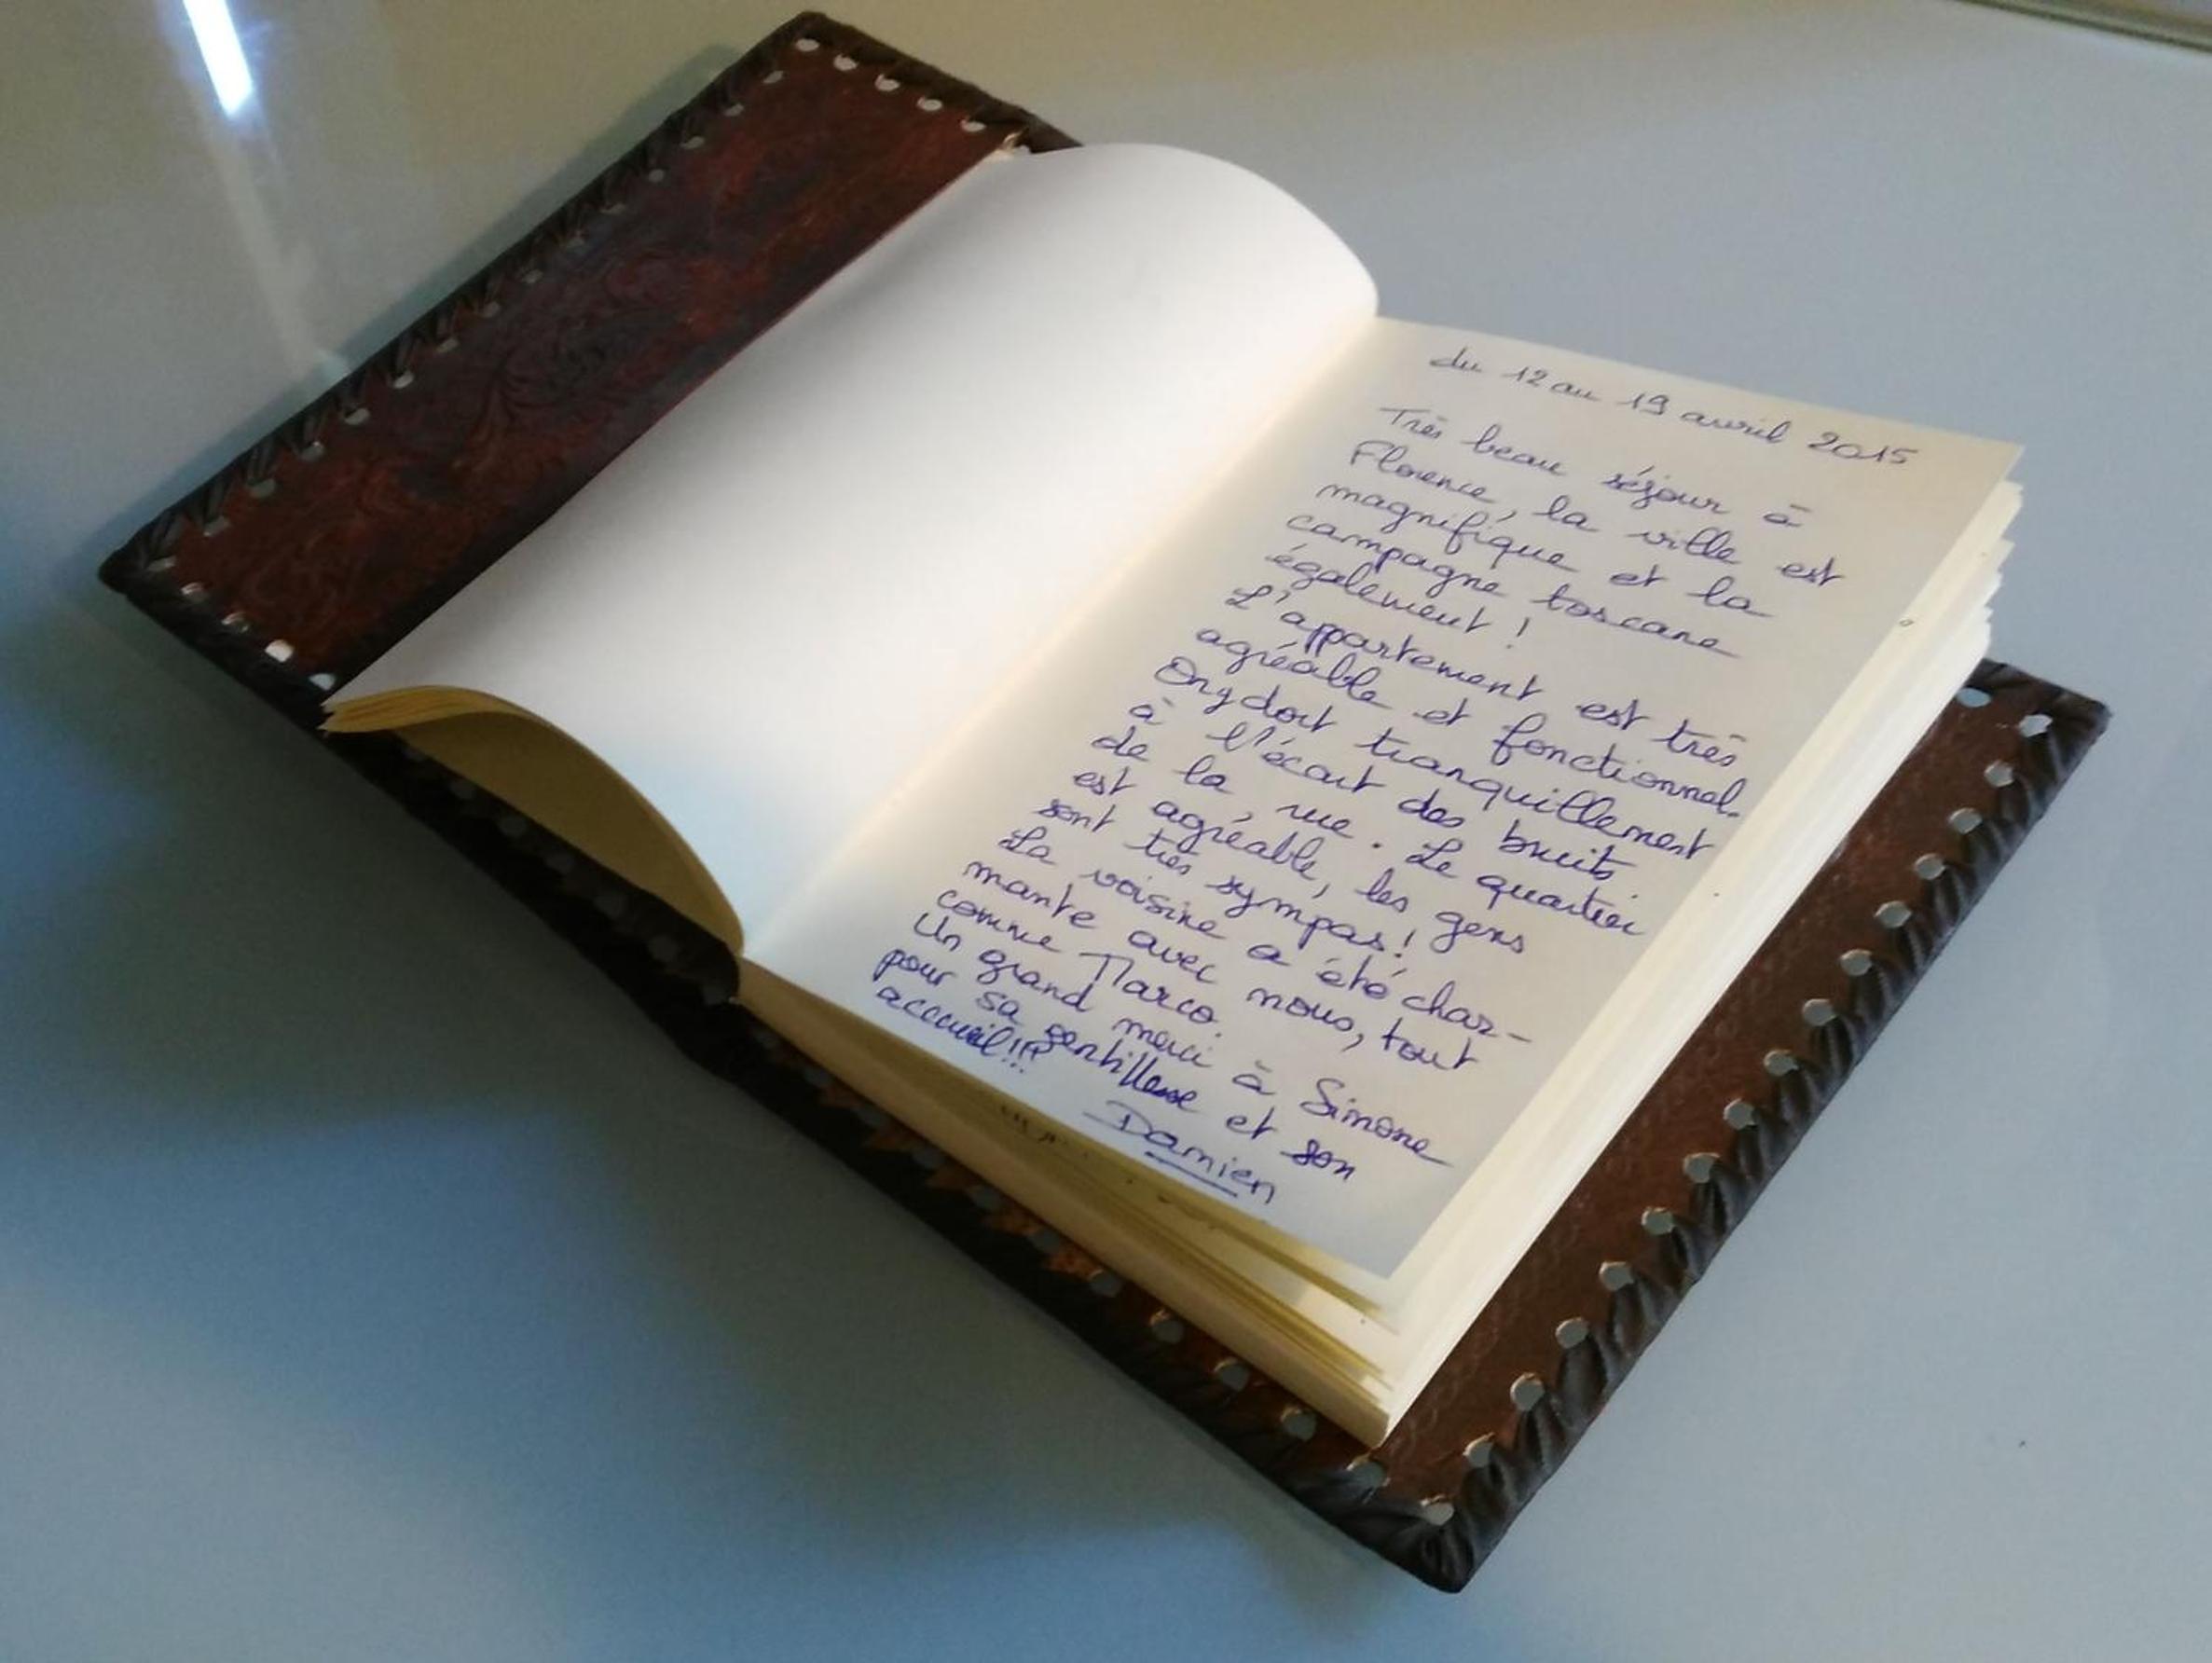 du 12 au 19 avril 2015
Très beau séjour à
Florence, la ville est
magnifique et la
campagne toscane
également !
L'appartement est très
agréable et fonctionnel.
On y dort tranquillement
à l'écart des bruits
de la rue. Le quartier
est agréable, les gens
sont très sympas !
La voisine a été char-
mante avec nous, tout
comme Marco.
Un grand merci à Simone
pour sa gentillesse et son
accueil !!!
Damien